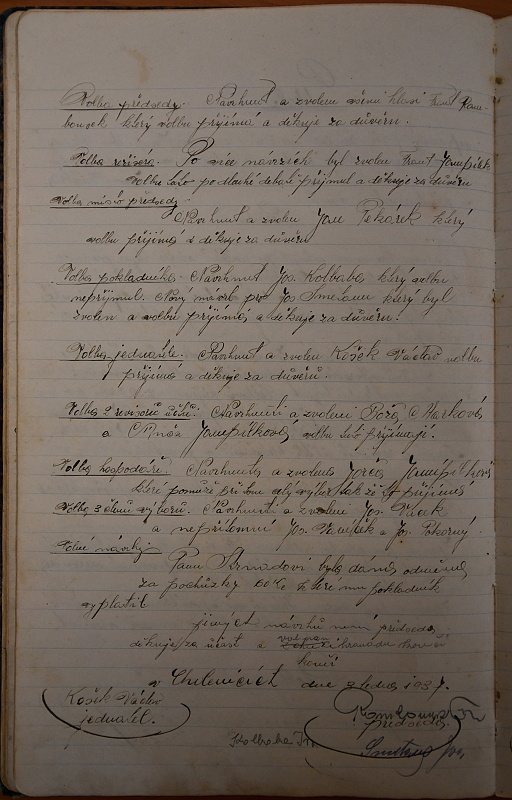 Volba předsedy. Navrhnut a zvolen všemi hlasi Frant Kam-
bousek který volbu přijímá a děkuje za důvěru.
Volba Po více návrzích byl zvolen Frant Jampílek
Volbu tuto po dlouhé debatě přijmul a děkuje za důvěru
Volba místo předsedy:
Navrhnut a zvolen Jan Pekárek který
volbu přijímá a děkuje za důvěru
Volba pokladníka. Navrhnut Jos. Kolbaba který volbu
nepřijmul. Nový návrh pro Jos Smetanu který byl
zvolen a volbu přijímá a děkuje za důvěru.
Volba jednatele. Navrhnut a zvolen Košek Václav volbu
přijímá a děkuje za důvěru.
Volba 2 revisorů účtů. Navrhnuti a zvoleni Horáková
a Jampílková volbu tuto přijímají.
Volba hospodáře. Navrhnuta a zvolena
které pomůže při tom celý výbor tak že přijímá
Volba 3 členů výboru. Navrhnuti a zvoleni Jos.
a nepřítomní Jos. Vaníček a Jos. Pokorný.
Volné návrhy
Panu Strnadovi byla dána odměna
za pochůzky 60 Kč které mu pokladník
vyplatil
jiných návrhů není předseda
děkuje za účast a
končí
v Chulenicích dne ledna 1937.
Košek Václav
jednatel.
předseda
Kolbaba
Smetana Jos.